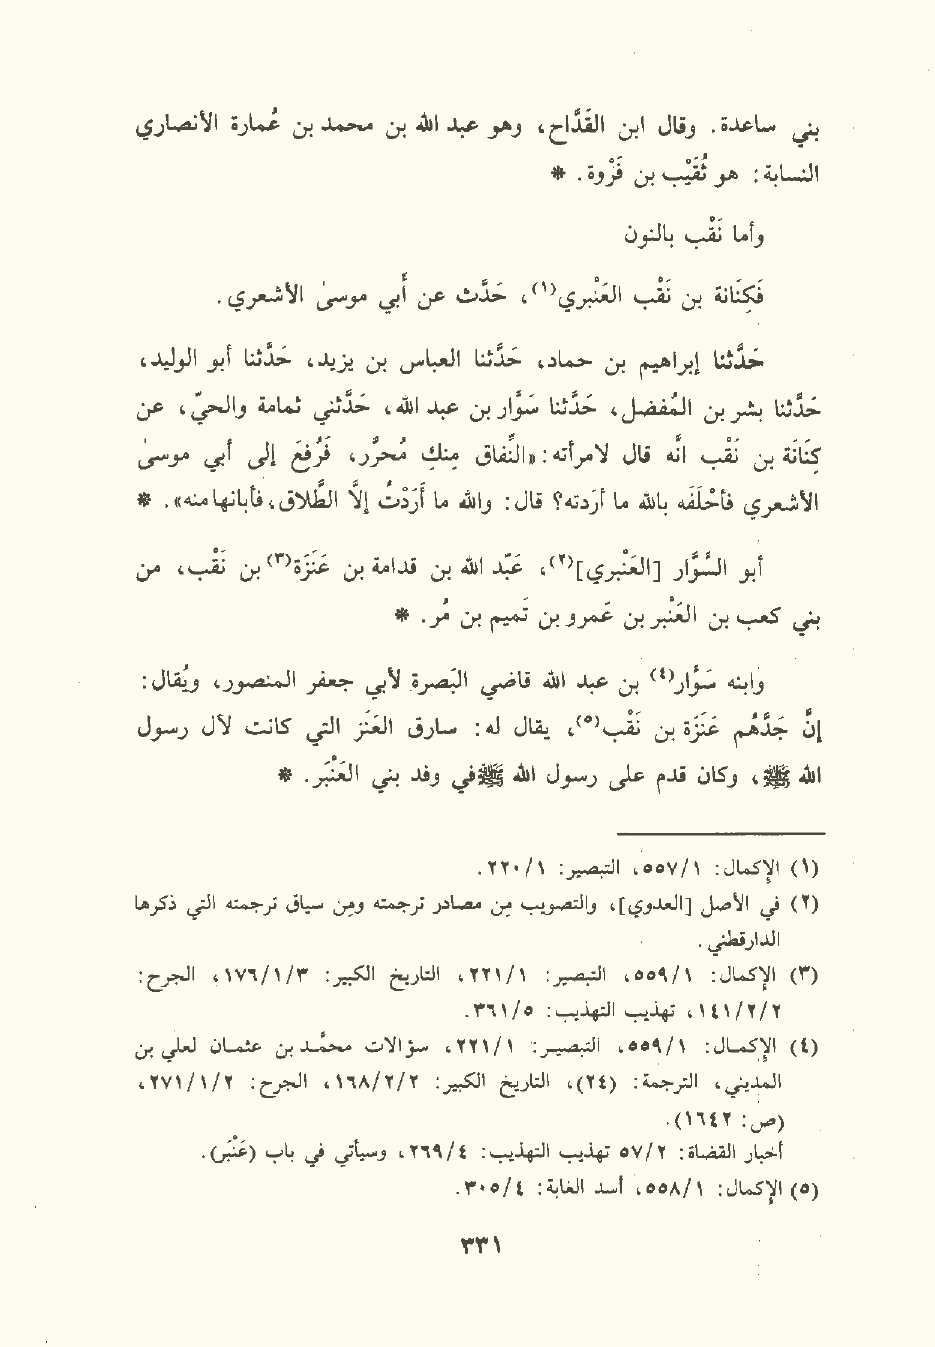 بني ساعدة. وقال ابن القَدَّاح، وهو عبد الله بن محمد بن عُمارة الأنصاري
النسابة: هو ثُقَيْب بن فَرْوة. *
وأما نَقْب بالنون
فَكِنَانة بن نَقْب العَنْبري(١)، حَدَّث عن أَبي موسىٰ الأشعري.
حَدَّثنا إبراهيم بن حماد، حَدَّثنا العباس بن يزيد، حَدَّثنا أبو الوليد،
حَدَّثنا بشر بن المُفضل، حَدَّثنا سَوَّار بن عبد الله، حَدَّثني ثمامة والحيّ، عن
كِنَانَة بن نَقْب أنَّه قال لامرأته: «النِّفاق مِنكِ مُحرَّر، فَرُفِعَ إلى أبي موسىٰ
الأشعري فأحْلَفَه بالله ما أرَدته؟ قال: والله ما أَرَدْتُ إلاَّ الطَّلاق، فأبانها منه». *
أبو السَّوَّار [العَنْبري](٢)، عَبّد الله بن قدامة بن عَنَزَة(٣) بن نَقْب، من
بني كعب بن العَنْبر بن عَمرو بن تَميم بن مُر. *
وابنه سَوَّار(٤) بن عبد الله قاضي البَصرة لأبي جعفر المنصور، ويُقال:
إنَّ جَدَّهُم عَنَزة بن نَقْب(٥)، يقال له: سارق العَنَز التي كانت لآل رسول
الله ﷺ، وكان قدم على رسول الله ﷺ في وفد بني العَنْبَر. *
(١) الإكمال: ٥٥٧/١، التبصير: ٢٢٠/١.
(٢) في الأصل [العدوي]، والتصويب مِن مصادر ترجمته ومِن سياق ترجمته التي ذكرها
الدارقطني.
(٣) الإكمال: ٥٥٩/١، التبصير: ٢٢١/١، التاريخ الكبير: ١٧٦/١/٣، الجرح:
١٤١/٢/٢، تهذيب التهذيب: ٣٦١/٥.
(٤) الإكمال: ٥٥٩/١، التبصير: ٢٢١/١، سؤالات محمَّد بن عثمان لعلي بن
المديني، الترجمة: (٢٤)، التاريخ الكبير: ١٦٨/٢/٢، الجرح: ٢٧١/١/٢،
(ص: ١٦٤٢).
أخبار القضاة: ٥٧/٢ تهذيب التهذيب: ٢٦٩/٤، وسيأتي في باب (عَنْبَر).
(٥) الإكمال: ٥٥٨/١، أسد الغابة: ٣٠٥/٤.
٣٣١